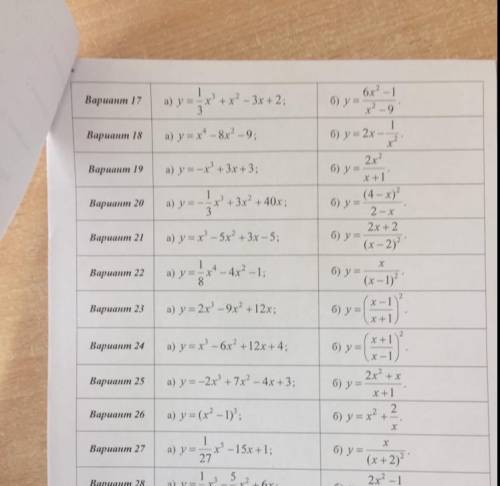 Вариант 17 а) y = 1/3 x³ + x² − 3x + 2; б) y = (6x² − 1)/(x² − 9).
Вариант 18 а) y = x⁴ − 8x² − 9; б) y = 2x − 1/x².
Вариант 19 а) y = −x³ + 3x + 3; б) y = 2x²/(x + 1).
Вариант 20 а) y = −1/3 x³ + 3x² + 40x; б) y = (4 − x)²/(2 − x).
Вариант 21 а) y = x³ − 5x² + 3x − 5; б) y = (2x + 2)/(x − 2)².
Вариант 22 а) y = 1/8 x⁴ − 4x² − 1; б) y = x/(x − 1)².
Вариант 23 а) y = 2x³ − 9x² + 12x; б) y = ((x − 1)/(x + 1))².
Вариант 24 а) y = x³ − 6x² + 12x + 4; б) y = ((x + 1)/(x − 1))².
Вариант 25 а) y = −2x³ + 7x² − 4x + 3; б) y = (2x² + x)/(x + 1)
Вариант 26 а) y = (x² − 1)³; б) y = x² + 2/x.
Вариант 27 а) y = 1/27 x⁵ − 15x + 1; б) y = x/(x + 2)².
Вариант 28 а) y = 1/3 x³ − 5/2 x² + 6x; 2x² − 1